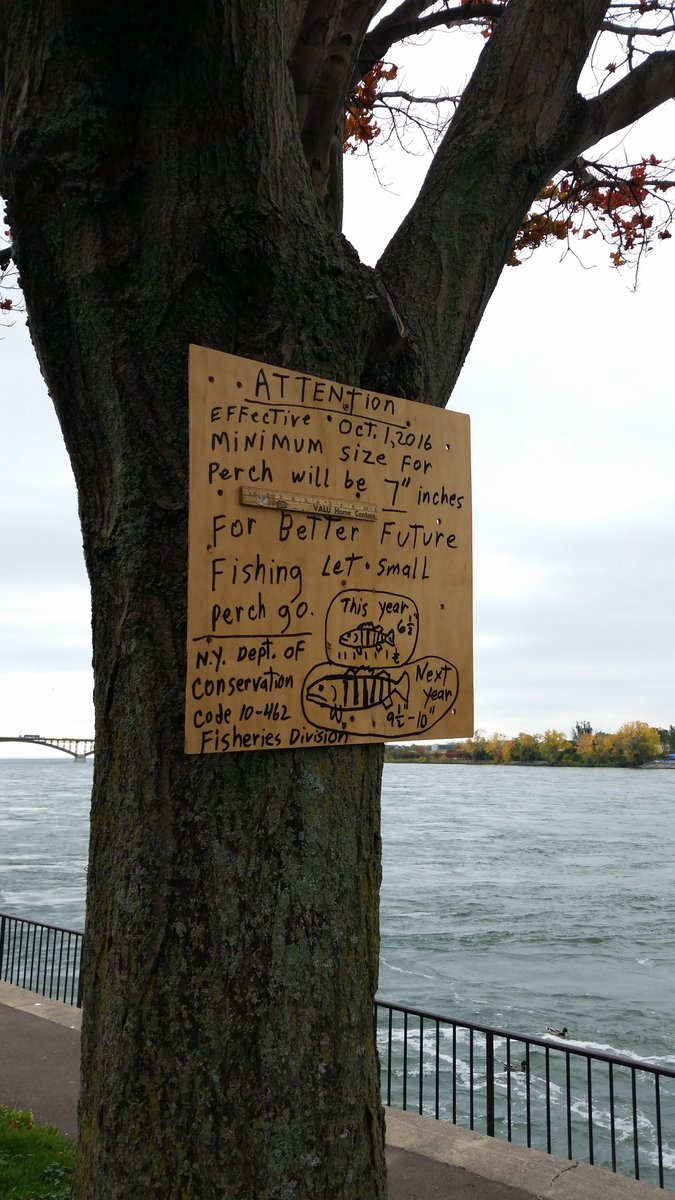 ATTENTION
EFFECTIVE • OCT. 1, 2016
MINIMUM SIZE FOR
Perch will be 7" inches
VALU Home Centers
For Better Future
Fishing Let • small
perch go.
This year
6 1/2"
N.Y. Dept. of
Conservation
Code 10-462
Fisheries Division
Next
year
9 1/2 - 10"